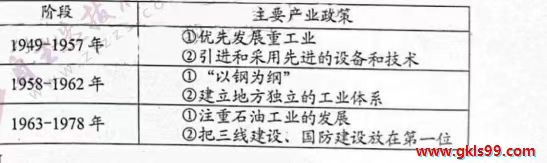 阶段 主要产业政策
1949-1957年 ①优先发展重工业
②引进和采用先进的设备和技术
1958-1962年 ①“以钢为纲”
②建立地方独立的工业体系
1963-1978年 ①注重石油工业的发展
②把三线建设、国防建设放在第一位
www.gkls99.com